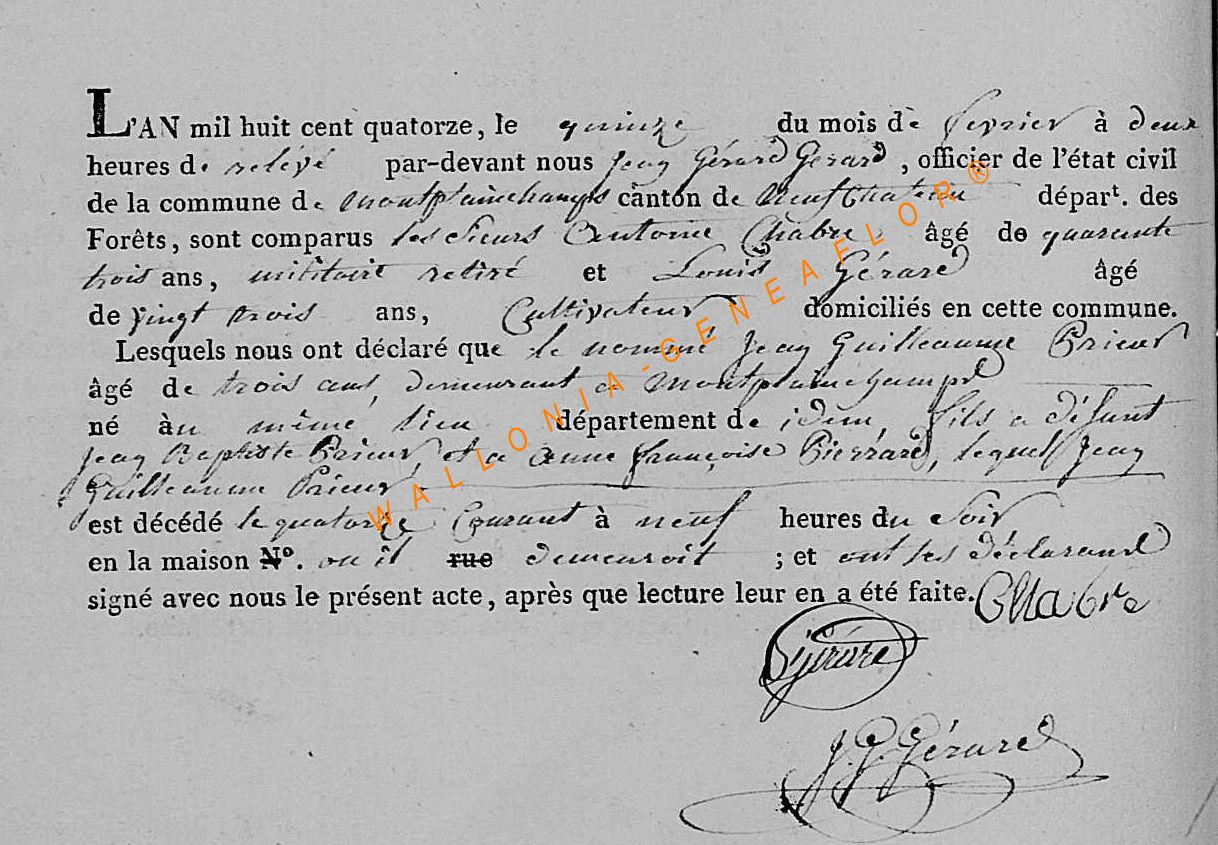 L'AN mil huit cent quatorze, le quinze du mois de fevrier à deux
heures de relevé par-devant nous Jean Gérard Gerard, officier de l'état civil
de la commune de Montplainchamps canton de Neufchateau départ. des
Forêts, sont comparus les sieurs Antoine Chabre âgé de quarante
trois ans, militaire retiré et Louis Gérard âgé
de vingt trois ans, Cultivateur domiciliés en cette commune.
Lesquels nous ont déclaré que le nommé Jean Guilleaume Prieur
âgé de trois ans, demeurant a Montplainchamps
né au même lieu département de idem, fils a défunt
Jean Baptiste Prieur, et a Anne françoise Pierrard, lequel Jean
Guilleaume Prieur
est décédé le quatorze Courant à neuf heures du Soir
en la maison N°. ou il rue demeuroit ; et ont les déclarans
signé avec nous le présent acte, après que lecture leur en a été faite. Chabre
Gérard
J. G. Gérard
WALLONIA-GENEAELOR®